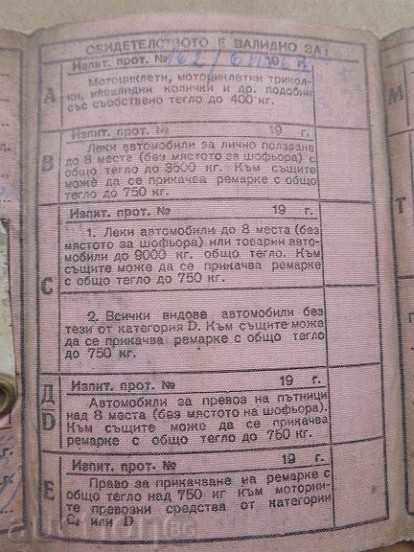 СВИДЕТЕЛСТВОТО Е ВАЛИДНО ЗА:
А
Изпит. прот. № 162/ 19 г.
Мотоциклети, мотоциклетни трикол-
ки, инвалидни колички и др. подобни
със собствено тегло до 400 кг.
В
Изпит. прот. № 19 г.
Леки автомобили за лично ползване
до 8 места (без мястото за шофьора) с
общо тегло до 3500 кг. Към същите
може да се прикачва ремарке с общо
тегло до 750 кг.
С
Изпит. прот. № 19 г.
1. Леки автомобили до 8 места (без
мястото за шофьора) или товарни авто-
мобили до 9000 кг. общо тегло. Към
същите може да се прикачва ремарке
с общо тегло до 750 кг.
2. Всички видове автомобили без
тези от категория D. Към същите може
да се прикачва ремарке с общо тегло
до 750 кг.
Д/D
Изпит. прот. № 19 г.
Автомобили за превоз на пътници
над 8 места (без мястото на шофьора).
Към същите може да се прикачва
ремарке с общо тегло до 750 кг.
Е
Изпит. прот. № 19 г.
Право за прикачване на ремарке с
общо тегло над 750 кг към моторни-
те превозни средства от категории
С₁ или D
М
Т